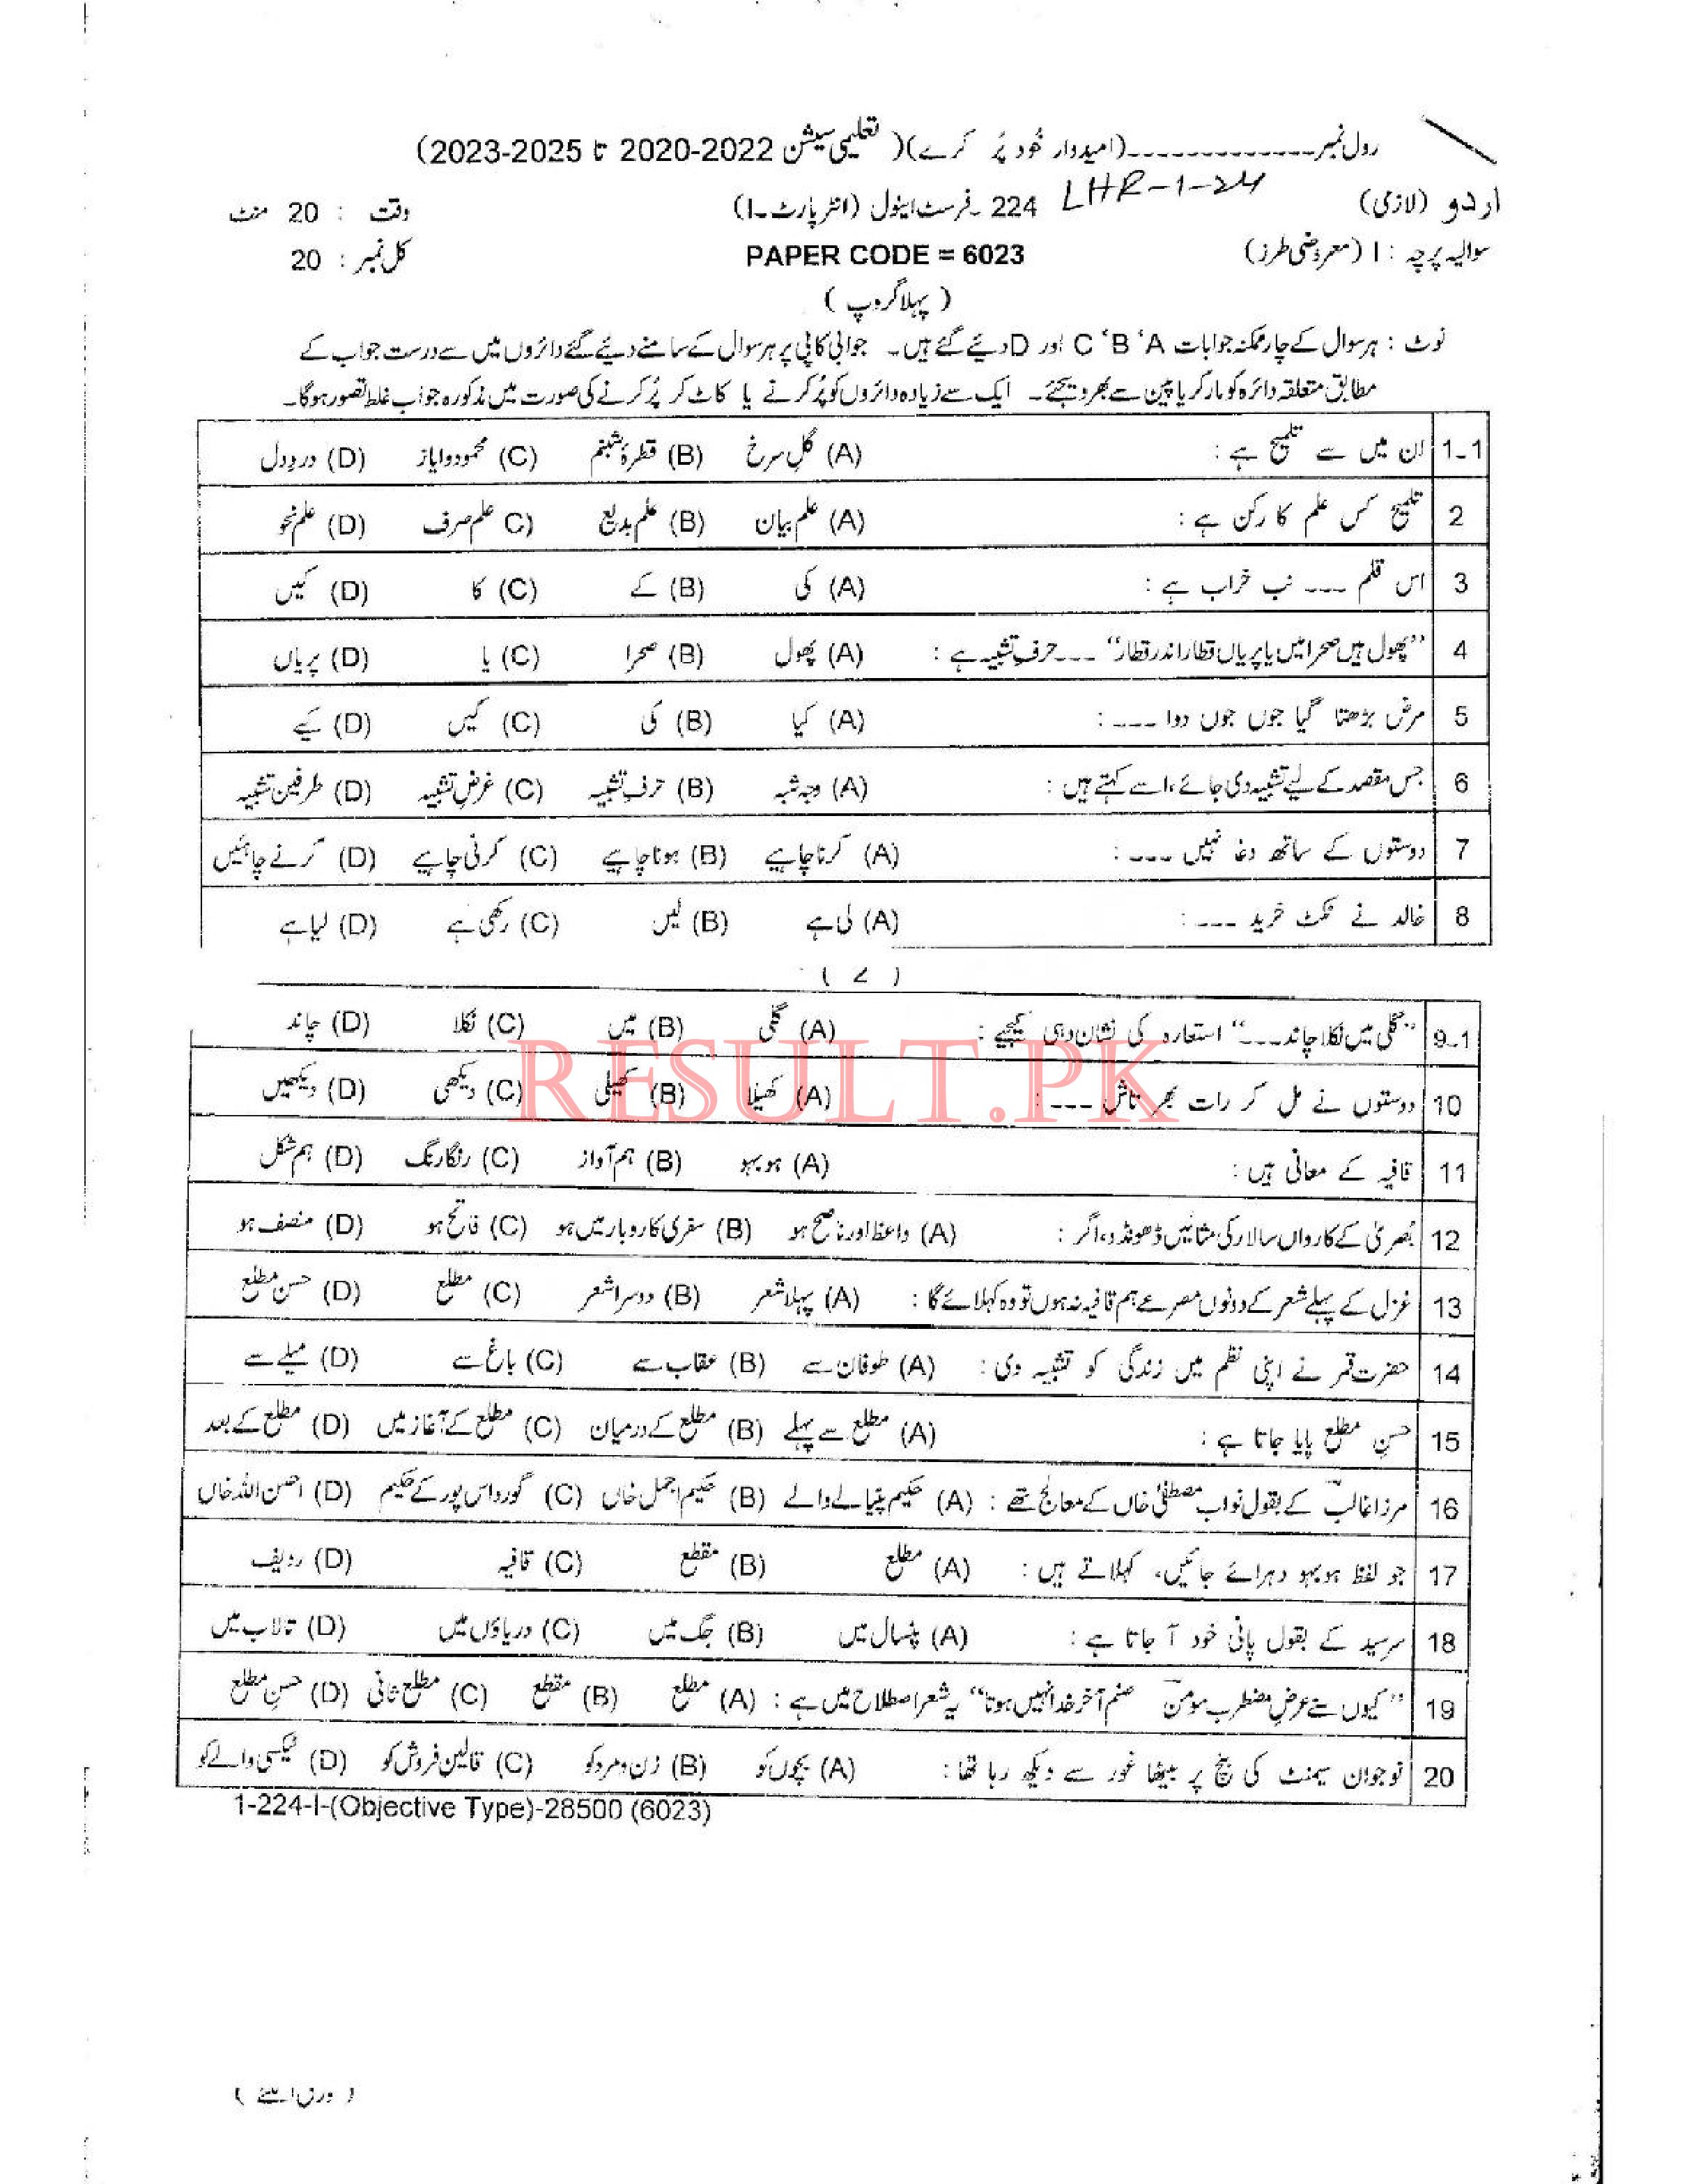 رول نمبر ـــــــــــــــ (امیدوار خود پُر کرے) ( تعلیمی سیشن 2022-2020 تا 2025-2023)
اردو (لازمی) 224 ۔ فرسٹ ائیول (انٹر پارٹ ۔I) LHR-1-24 وقت : 20 منٹ
سوالیہ پرچہ : I (معروضی طرز) PAPER CODE = 6023 کل نمبر : 20
( پہلا گروپ )
نوٹ : ہر سوال کے چار ممکنہ جوابات C ‘B ‘A اور D دیئے گئے ہیں ۔ جوابی کاپی پر ہر سوال کے سامنے دیئے گئے دائروں میں سے درست جواب کے
مطابق متعلقہ دائرہ کو مارکر یا پین سے بھر دیجئے ۔ ایک سے زیادہ دائروں کو پُر کرنے یا کاٹ کر پُر کرنے کی صورت میں مذکورہ جواب غلط تصور ہوگا ۔
1۔1 ان میں سے تلمیح ہے : (A) گلِ سرخ (B) قطرۂ شبنم (C) محمود و ایاز (D) دردِ دل
2 تلمیح کس علم کا رکن ہے : (A) علم بیان (B) علم بدیع (C علم صرف (D) علم نحو
3 اس قلم ۔۔۔ نب خراب ہے : (A) کی (B) کے (C) کا (D) کیں
4 ”پھول ہیں صحرا میں یا پریاں قطار اندر قطار“ ۔۔۔ حرفِ تشبیہ ہے : (A) پھول (B) صحرا (C) یا (D) پریاں
5 مرض بڑھتا گیا جوں جوں دوا ۔۔۔ : (A) کیا (B) کی (C) کیں (D) کیے
6 جس مقصد کے لیے تشبیہ دی جائے، اسے کہتے ہیں : (A) وجہ شبہ (B) حرفِ تشبیہ (C) غرضِ تشبیہ (D) طرفینِ تشبیہ
7 دوستوں کے ساتھ دغا نہیں ۔۔۔ : (A) کرنا چاہیے (B) ہونا چاہیے (C) کرنی چاہیے (D) کرنے چاہئیں
8 خالد نے ٹکٹ خرید ۔۔۔ : (A) لی ہے (B) لیں (C) رکھی ہے (D) لیا ہے
( 2 )
9۔1 ”گلی میں نکلا چاند ۔۔۔“ استعارہ کی نشان دہی کیجیے : (A) گلی (B) میں (C) نکلا (D) چاند
10 دوستوں نے مل کر رات بھر تاش ۔۔۔ : (A) کھیلا (B) کھیلی (C) دیکھی (D) دیکھیں
11 قافیہ کے معانی ہیں : (A) ہو بہو (B) ہم آواز (C) رنگارنگ (D) ہم شکل
12 بُصریٰ کے کارواں سالار کی مثالیں ڈھونڈو، اگر : (A) واعظ اور ناصح ہو (B) سفری کاروبار میں ہو (C) فاتح ہو (D) منصف ہو
13 غزل کے پہلے شعر کے دونوں مصرعے ہم قافیہ نہ ہوں تو وہ کہلائے گا : (A) پہلا شعر (B) دوسرا شعر (C) مطلع (D) حسن مطلع
14 حضرت قمر نے اپنی نظم میں زندگی کو تشبیہ دی : (A) طوفان سے (B) عقاب سے (C) باغ سے (D) میلے سے
15 حسنِ مطلع پایا جاتا ہے : (A) مطلع سے پہلے (B) مطلع کے درمیان (C) مطلع کے آغاز میں (D) مطلع کے بعد
16 مرزا غالب کے بقول نواب مصطفیٰ خاں کے معالج تھے : (A) حکیم پٹیالے والے (B) حکیم اجمل خاں (C) گورداس پور کے حکیم (D) احسن اللہ خاں
17 جو لفظ ہو بہو دہرائے جائیں، کہلاتے ہیں : (A) مطلع (B) مقطع (C) قافیہ (D) ردیف
18 سرسید کے بقول پانی خود آ جاتا ہے : (A) پنسال میں (B) جگ میں (C) دریاؤں میں (D) تالاب میں
19 ”کیوں سنے عرضِ مضطرب مومن صنم آخر خدا نہیں ہوتا“ یہ شعر اصطلاح میں ہے : (A) مطلع (B) مقطع (C) مطلع ثانی (D) حسنِ مطلع
20 نوجوان سیمنٹ کی بنچ پر بیٹھا غور سے دیکھ رہا تھا : (A) بچوں کو (B) زن و مرد کو (C) قالین فروش کو (D) ٹیکسی والے کو
1-224-I-(Objective Type)-28500 (6023)
RESULT.PK
( ورق الٹئے )